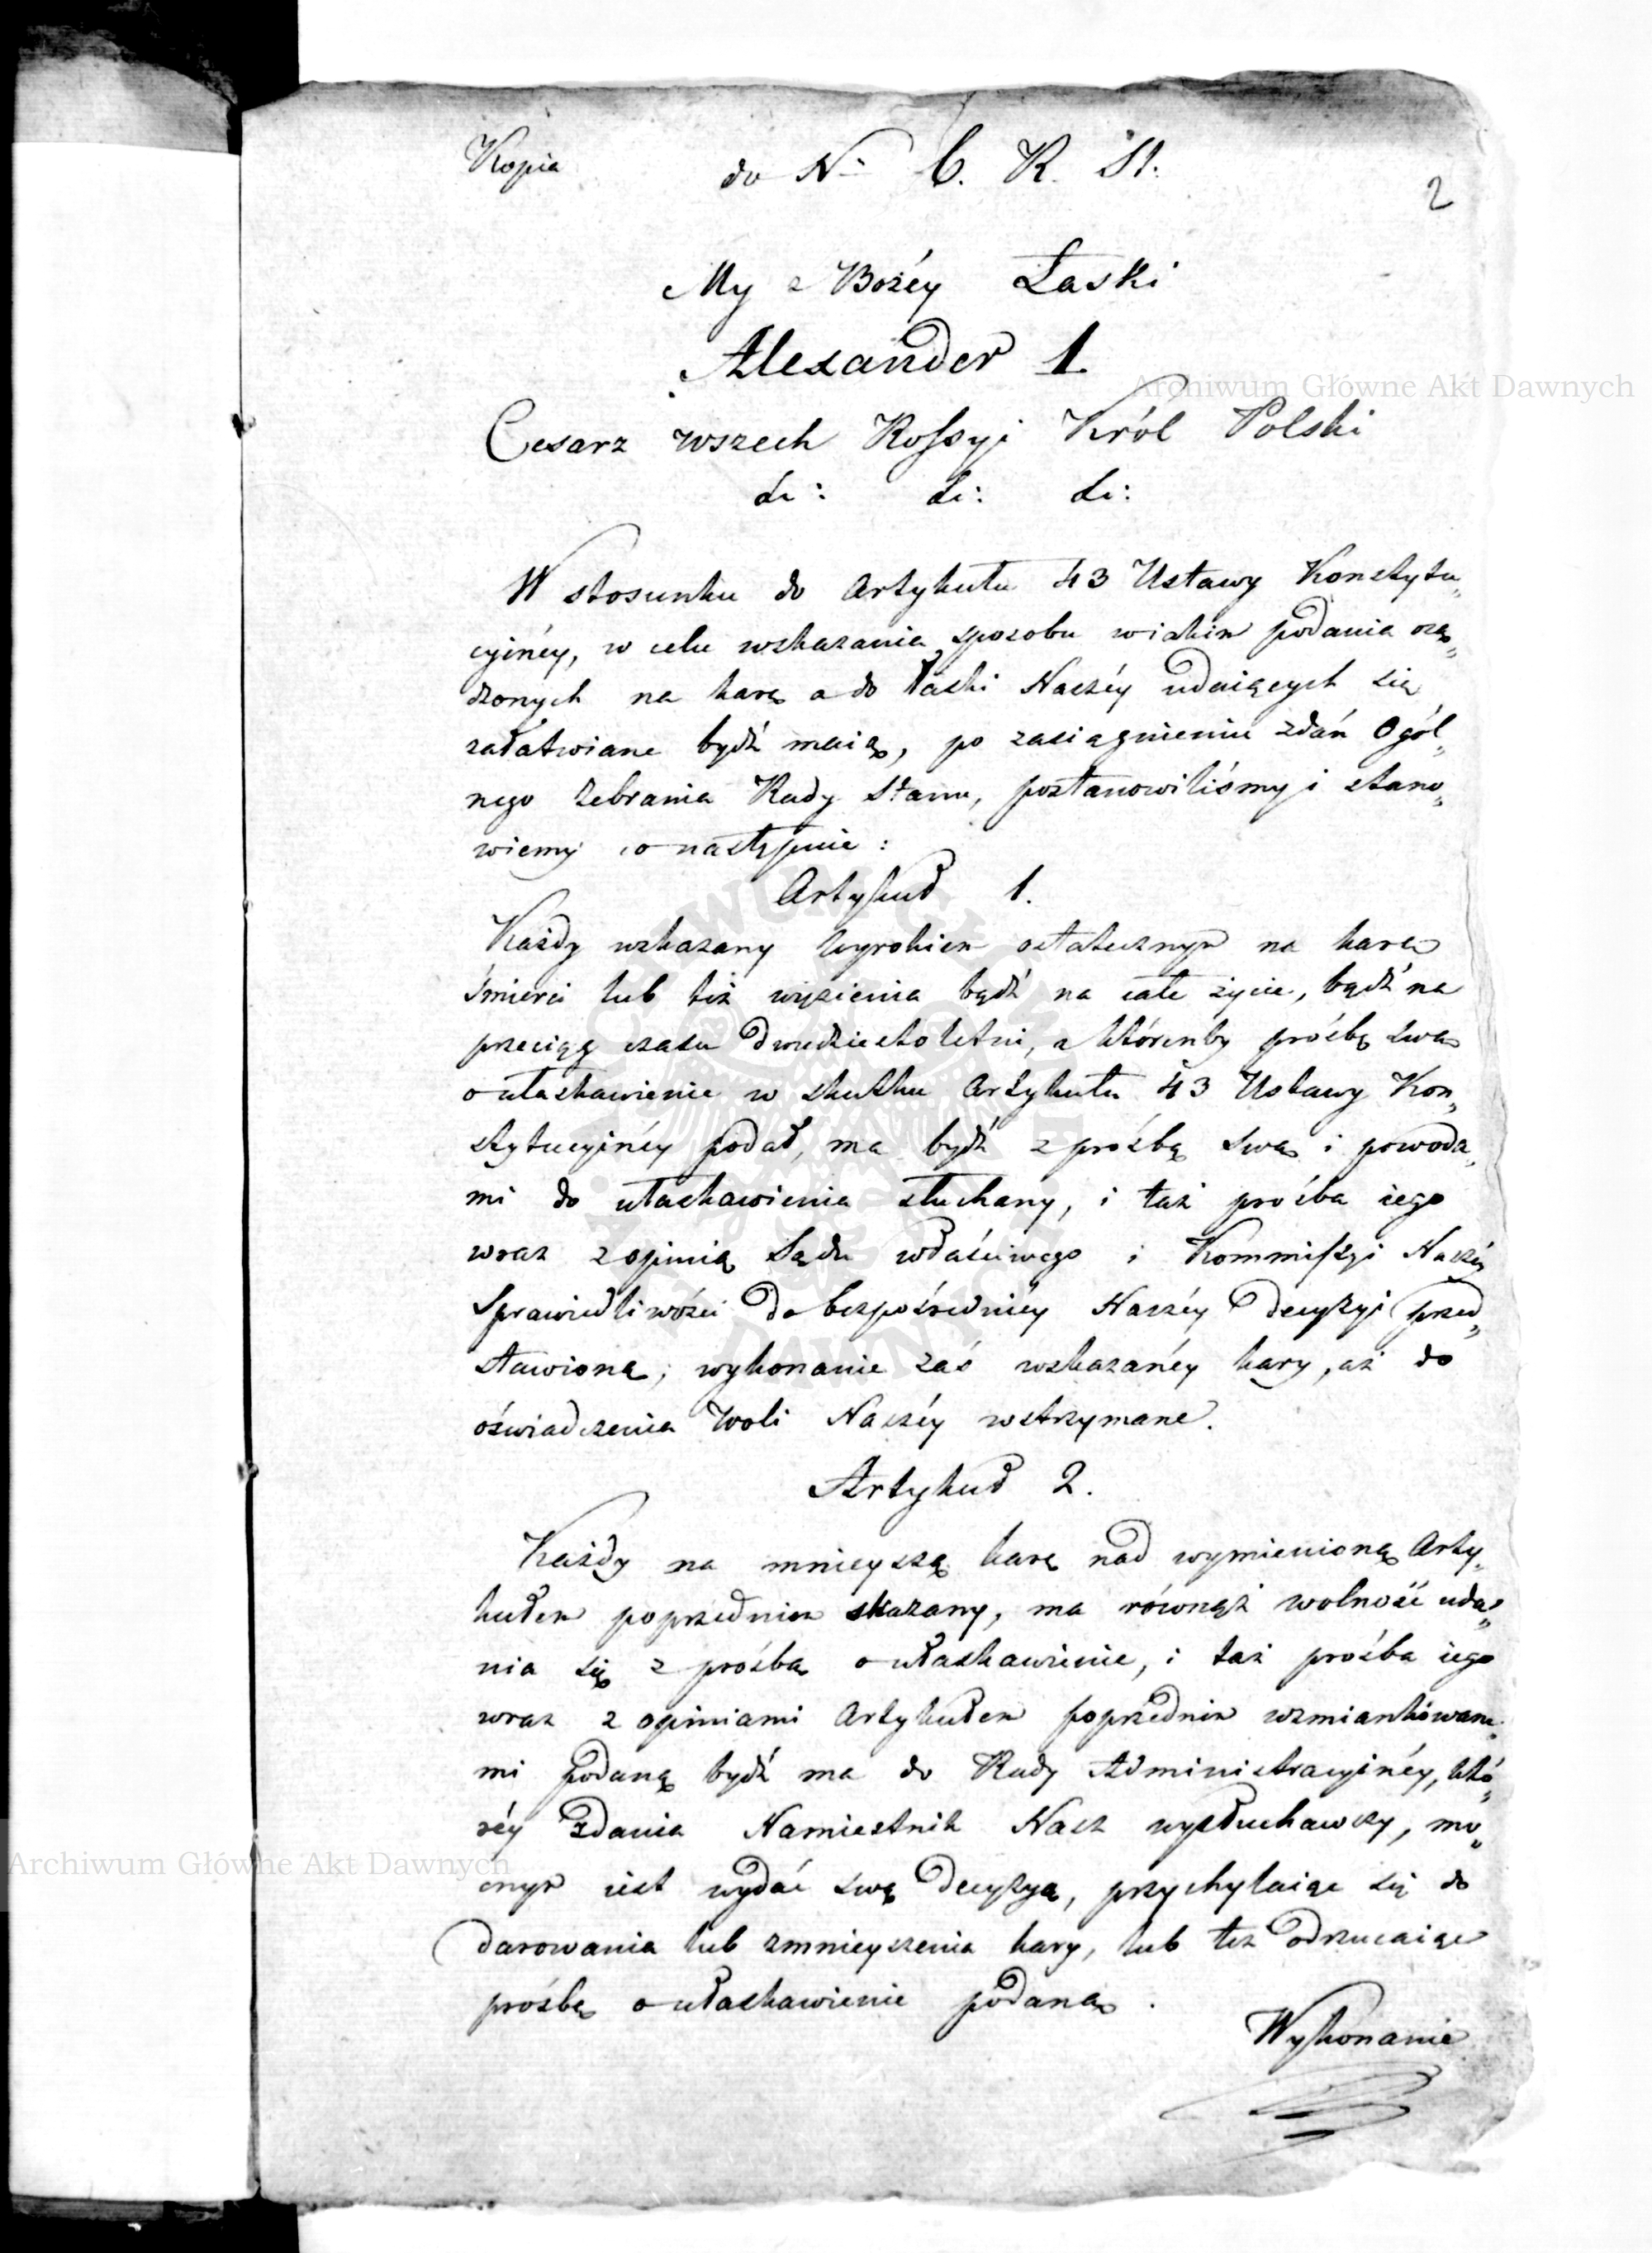 Kopia do Nr 6. R. St.
2
My z Bożéy Łaski
Alexander 1.
Cesarz wszech Rossyi Król Polski
&c: &c: &c:
W stosunku do Artykułu 43 Ustawy Konstytu„
cyinéy, w celu wskazania sposobu w iakim podania osą„
dzonych na karę a do łaski Naszéy udaiących się
załatwiane bydź maią, po zasiągnieniu zdań Ogól„
nego Zebrania Rady Stanu, postanowiliśmy i stano„
wiemy co następuie:
Artykuł 1.
Każdy wskazany wyrokiem ostatecznym na karę
śmierci lub też więzienia bądź na całe życie, bądź na
przeciąg czasu dwudziestoletni, a którenby prośbę swą
o ułaskawienie w skutku Artykułu 43 Ustawy Kon„
stytucyinéy podał, ma bydź z prośbą swą i powoda„
mi do ułaskawienia słuchany, i taż prośba iego
wraz z opinią Sądu właściwego i Kommissyi Naszéy
Sprawiedliwości do bezpośrednićy Naszéy decyzyi przed„
stawioną; wykonanie zaś wskazanéy kary, aż do
oświadczenia Woli Naszéy wstrzymane.
Artykuł 2.
Każdy na mnieyszą karę nad wymienioną Arty„
kułem poprzednim skazany, ma równąż wolność uda„
nia się z prośbą o ułaskawienie, i taż prośba iego
wraz z opiniami Artykułem poprzednim wzmiankowane„
mi podaną bydź ma do Rady Administracyinéy, któ„
réy zdania Namiestnik Nasz wysłuchawszy, mo„
cnym iest wydać swą decyzyą, przychylaiąc się do
darowania lub zmnieyszenia kary, lub też odrzucaiąc
prośbę o ułaskawienie podaną.
Wykonanie
Archiwum Główne Akt Dawnych
Archiwum Główne Akt Dawnych